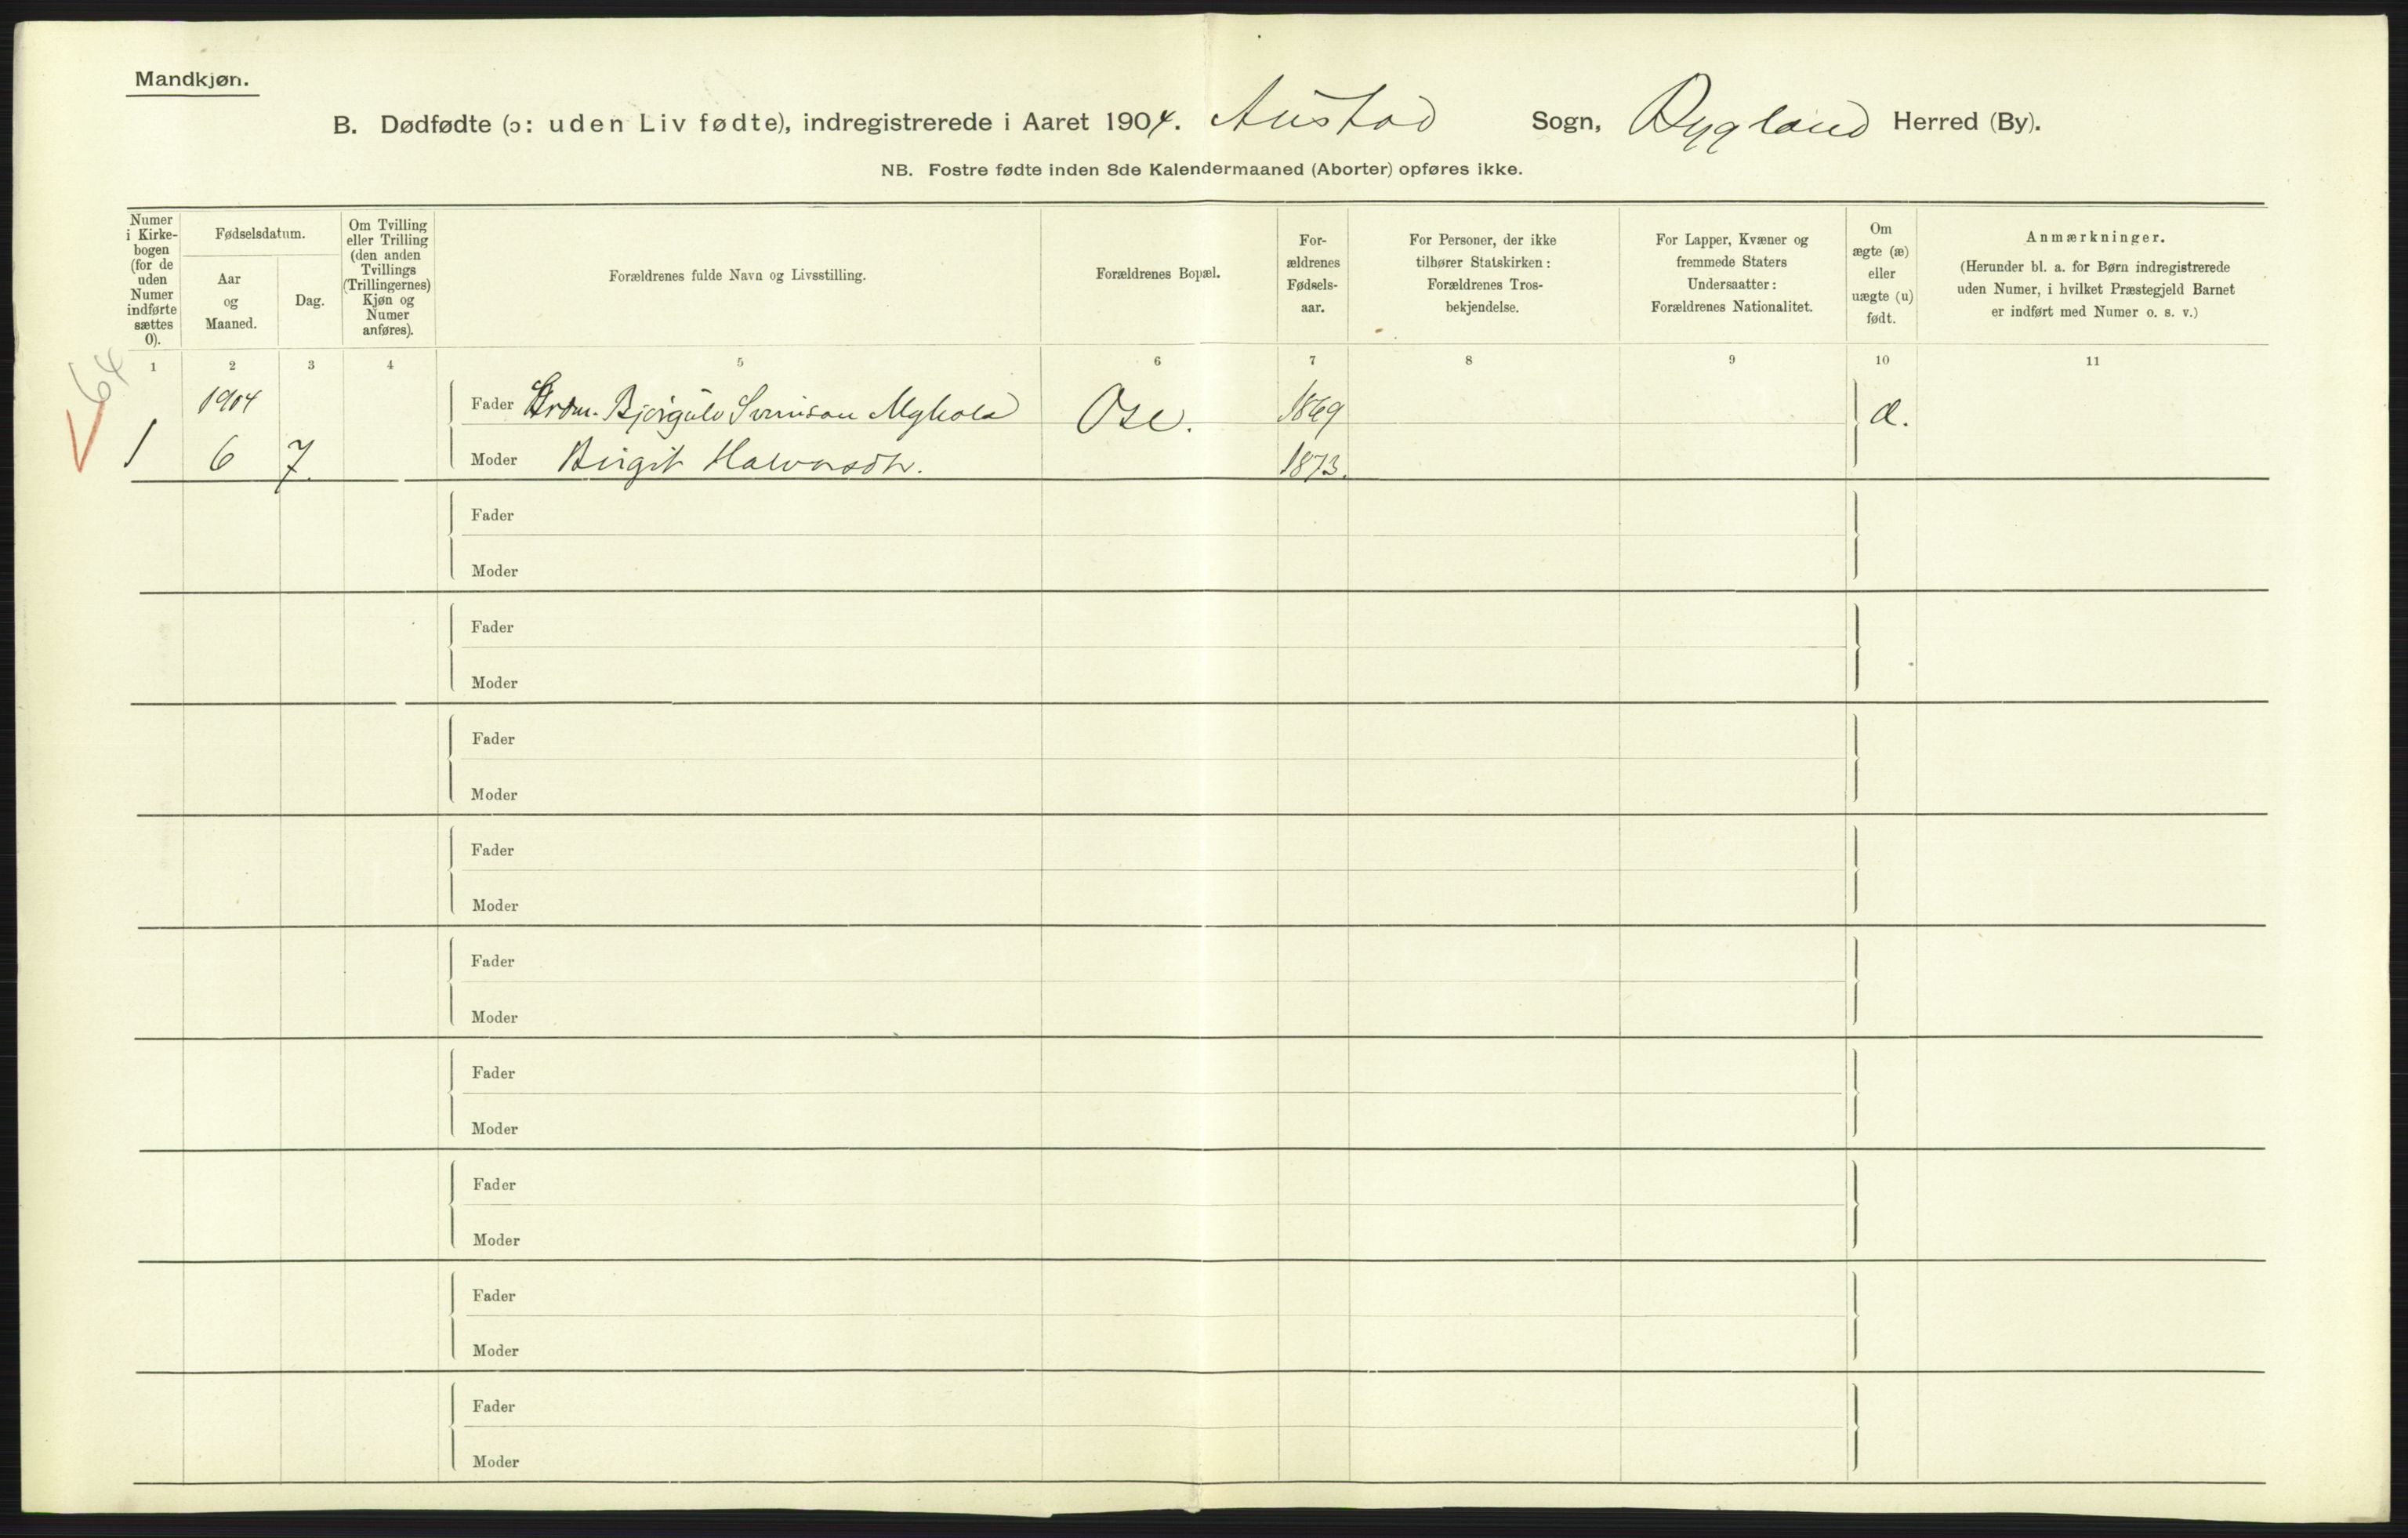 Mandkjøn.
B. Dødfødte (ɔ: uden Liv fødte), indregistrerede i Aaret 1904. Austad Sogn, Bygland Herred (By).
NB. Fostre fødte inden 8de Kalendermaaned (Aborter) opføres ikke.
Numer
i Kirke-
bogen
(for de
uden
Numer
indførte
sættes
0).
Fødselsdatum.
Aar
og
Maaned.
Dag.
Om Tvilling
eller Trilling
(den anden
Tvillings
(Trillingernes)
Kjøn og
Numer
anføres).
Forældrenes fulde Navn og Livsstilling.
Forældrenes Bopæl.
For-
ældrenes
Fødsels-
aar.
For Personer, der ikke
tilhører Statskirken:
Forældrenes Tros-
bekjendelse.
For Lapper, Kvæner og
fremmede Staters
Undersaatter:
Forældrenes Nationalitet.
Om
ægte (æ)
eller
uægte (u)
født.
Anmærkninger.
(Herunder bl. a. for Børn indregistrerede
uden Numer, i hvilket Præstegjeld Barnet
er indført med Numer o. s. v.)
1 2 3 4 5 6 7 8 9 10 11
64
1904 Fader Grdm. Bjørgulv Ose. 1869 æ.
1 6 7. Moder Birgit Halvorsdtr. 1873.
Fader
Moder
Fader
Moder
Fader
Moder
Fader
Moder
Fader
Moder
Fader
Moder
Fader
Moder
Fader
Moder
Fader
Moder